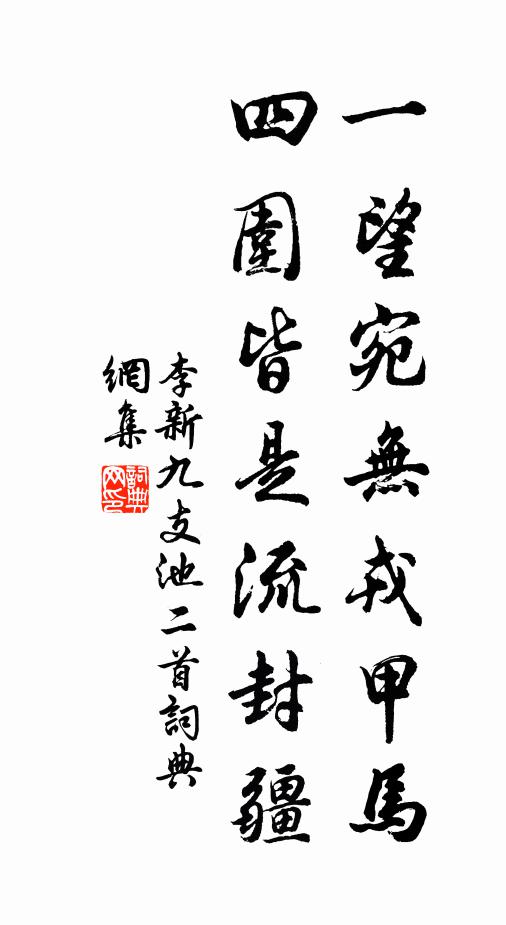 一望宛無戎甲馬
四圍皆是流封疆
李新九支池二首詞典
網集
詞典網印